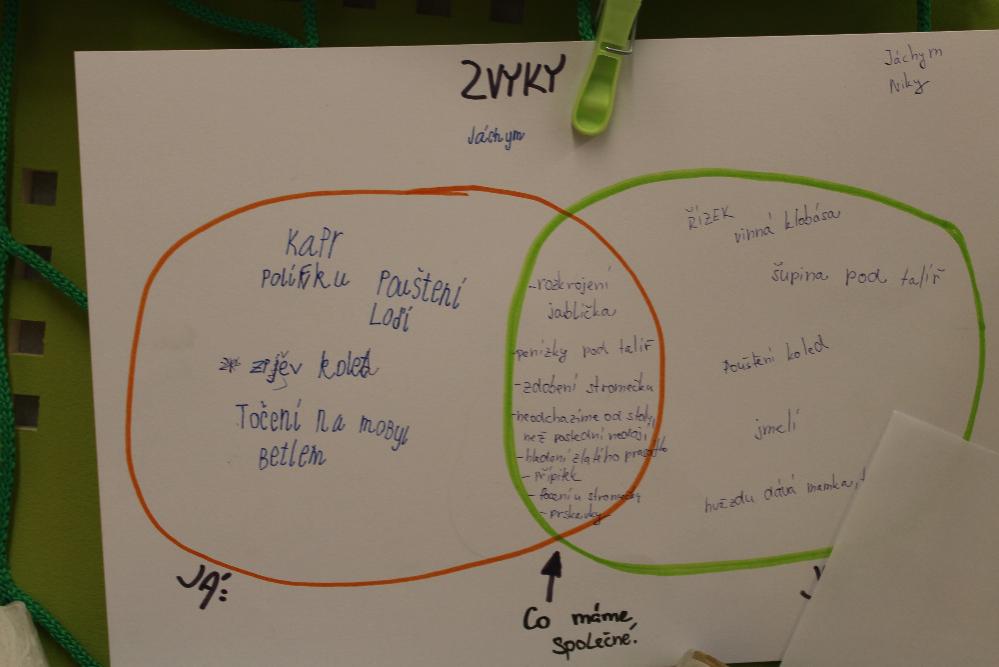 ZVYKY
Jáchym
Niky
Jáchym
Kapr
polífku
Pouštení
Lodí
zpjěv koled
Točení na mobyl
Betlem
-rozkrojení
jablíčka
-penízky pod talíř
-zdobení stromečku
-neodcházíme od stolu,
než poslední nedojí
-hledení zlatího prasátka
-přípitek
-focení u stromečku
-prskavky
ŘÍZEK
vinná klobása
šupina pod talíř
pouštění koled
jmelí
hvězdu dává mamka,
JÁ:
Co máme
společné.